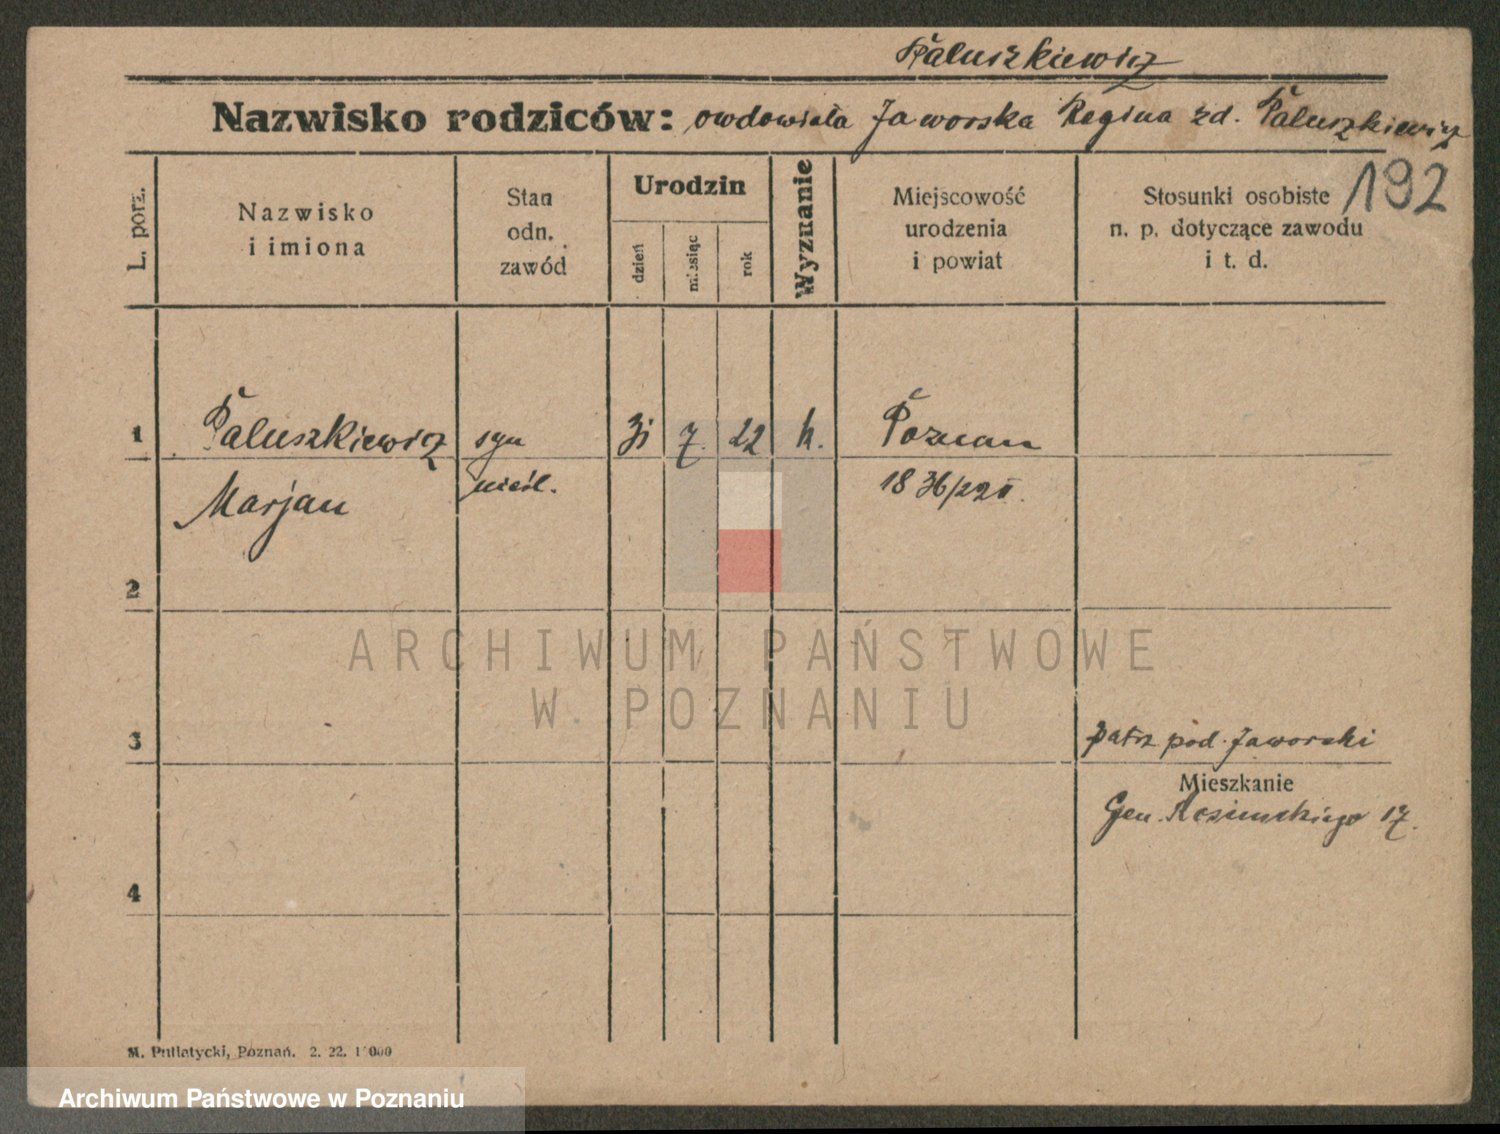 Paluszkiewicz
Nazwisko rodziców: owdowiała Jaworska Regina zd. Paluszkiewicz
192
L. porz.
Nazwisko
i imiona
Stan
odn.
zawód
Urodzin
dzień
miesiąc
rok
Wyznanie
Miejscowość
urodzenia
i powiat
Stosunki osobiste
n. p. dotyczące zawodu
i t. d.
1 Paluszkiewicz syn 31 7. 22 k. Poznan
Marjan nieśl. 1836/22II.
2
ARCHIWUM PAŃSTWOWE
W POZNANIU
3 Patrz pod. Jaworski
Mieszkanie
Gen. 17.
4
M. Putiatycki, Poznań. 2. 22.
Archiwum Państwowe w Poznaniu